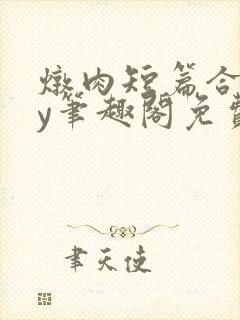 燉肉短篇合
y筆趣閣免費
聿天使